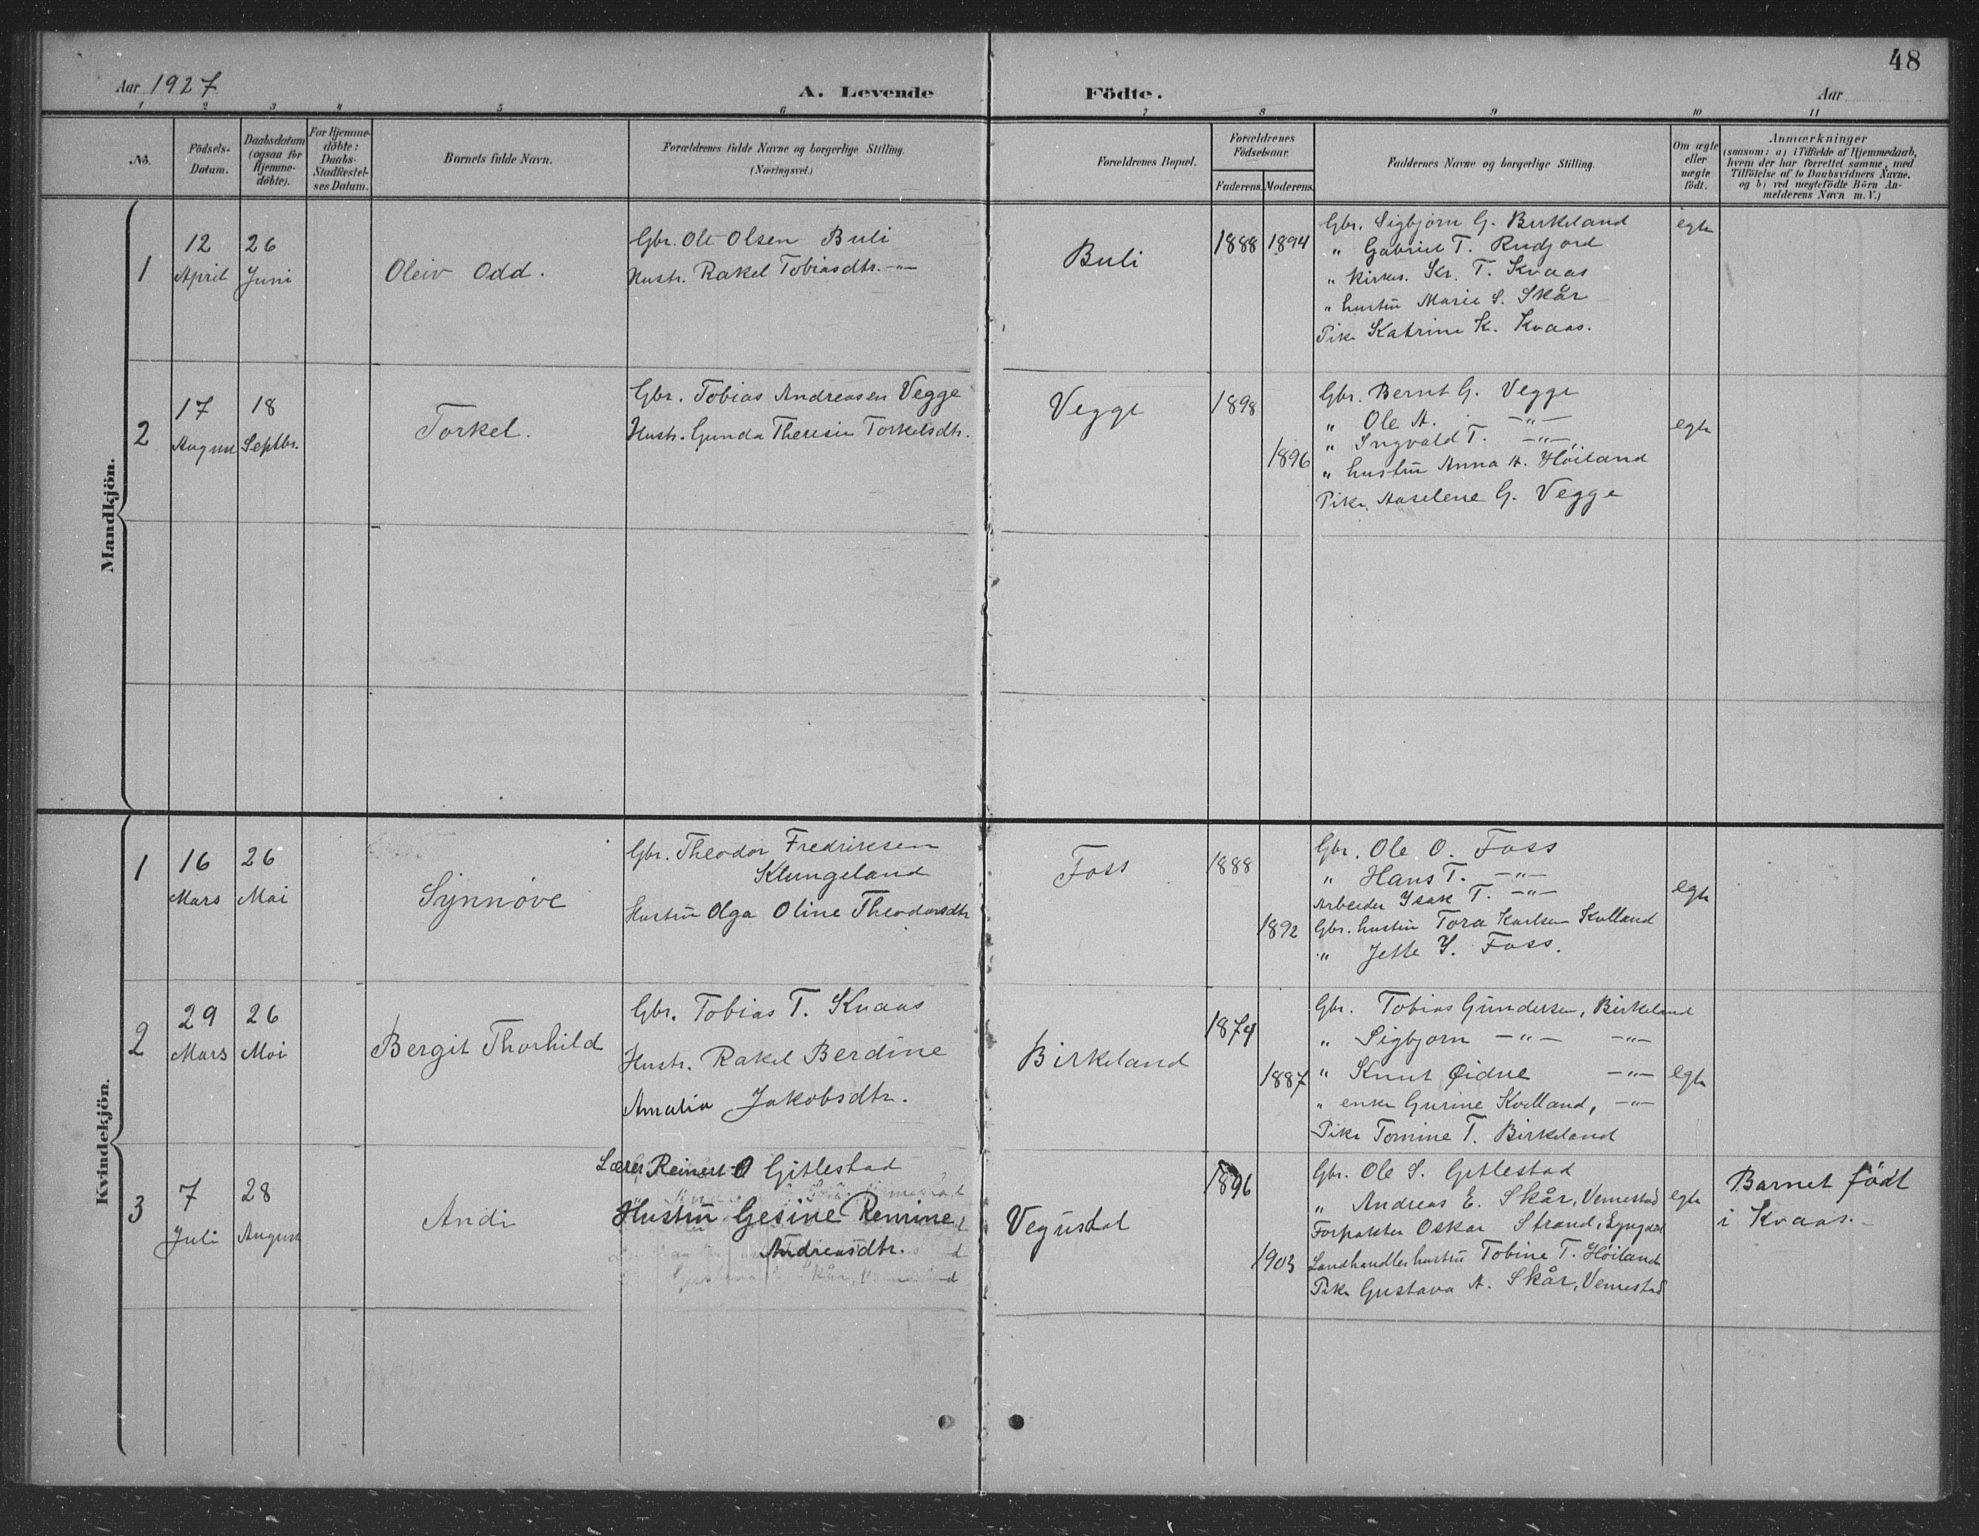 48
Aar 1927
A. Levende Födte.
Aar
1 2 3 4 5 6 7 8 9 10 11
No.
Födsels-Datum.
Daabsdatum (ogsaa for Hjemme-döbte).
For Hjemme-döbte: Daabs-Stadfæstel-ses Datum.
Barnets fulde Navn.
Forældrenes fulde Navne og borgerlige Stilling.
(Næringsvei.)
Forældrenes Bopæl.
Forældrenes Födselsaar.
Faderens. Moderens.
Faddernes Navne og borgerlige Stilling.
Om ægte eller uægte födt.
Anmærkninger
(saasom: a) i Tilfælde af Hjemmedaab,
hvem der har forrettet samme, med
Tilföielse af to Daabsvidners Navne.
og b) ved uægtefödte Börn An-
melderens Navn m. V.)
Mandkjön.
1
12 April
26 Juni
Oleiv Odd.
Gbr. Ole Olsen Buli
Hustr. Rakel Tobiasdtr. -"-
Buli
1888 1894
Gbr. Sigbjørn G. Birkeland
" Gabriel T. Rudjord
" Kirkes. Kr. T. Kvaas
" hustru Marie S. Skår
Pike Katrine K. Kvaas.
egte
2
17 August
18 Septbr.
Torkel.
Gbr. Tobias Andreasen Vegge
Hustr. Gunda Theresie Torkelsdtr.
Vegge
1898
1896
Gbr. Bernt G. Vegge
" Ole A. -"-
" Ingvald T. -"-
" hustru Anna A. Høiland
Pike Aaselene G. Vegge
egte
Kvindekjön.
1
16 Mars
26 Mai
Synnøve
Gbr. Theodor Fredriksen
Klungeland
Hustru Olga Oline Theodorsdtr
Foss
1888
1892
Gbr. Ole O. Foss
" Hans T. -"-
Arbeider Isak T. -"-
Gbr. hustru Tora Karlsen Kvelland
" Jette Y. Foss.
egte
2
29 Mars
26 Mai
Bergit Thorhild
Gbr. Tobias T. Kvaas
Hustr. Rakel Berdine
Amalia Jakobsdtr.
Birkeland
1874
1887
Gbr. Tobias Gundersen, Birkeland
" Sigbjørn -"- -"-
" Knut Øidne -"-
" enke Gurine Kvelland, -"-
Pike Tomine T. Birkeland
egte
3
7 Juli
28 August
Andi
Lærer Reinert O Gitlestad
Hustru Gesine Remine
Andreasdtr.
Vegusdal
1896
1903
Gbr. Ole S. Gitlestad
" Andreas E. Skår, Vemestad
Forpakter Oskar Strand, Lyngdal
Landhandlerhustru Tobine T. Høiland
Pike Gustava A. Skår, Vemestad
egte
Barnet født
i Kvaas.